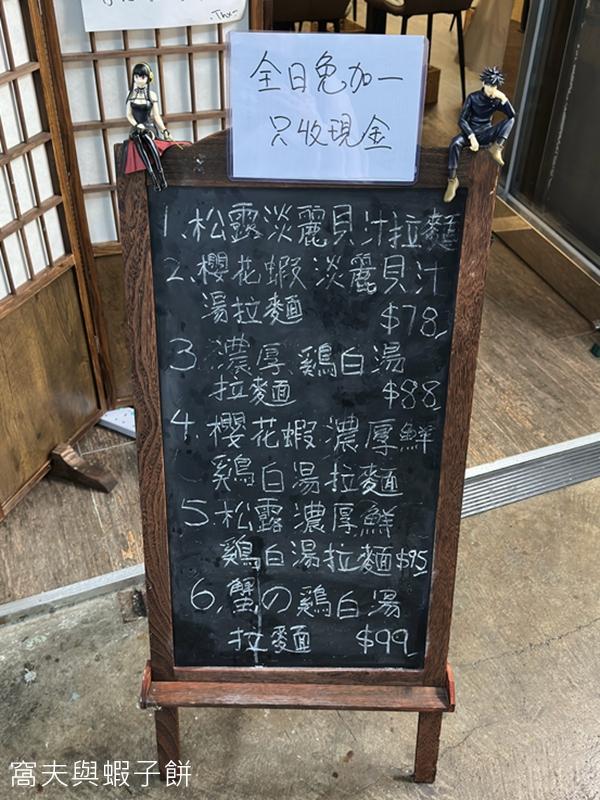 -Thx-
全日免加一
只收現金
1.松露淡麗貝汁拉麵
2.櫻花蝦淡麗貝汁
湯拉麵 $78
3 濃厚鷄白湯
拉麵 $88
4.櫻花蝦濃厚鮮
鷄白湯拉麵
5.松露濃厚鮮
鷄白湯拉麵$95
6.蟹の鷄白湯
拉麵 $99
窩夫與蝦子餅